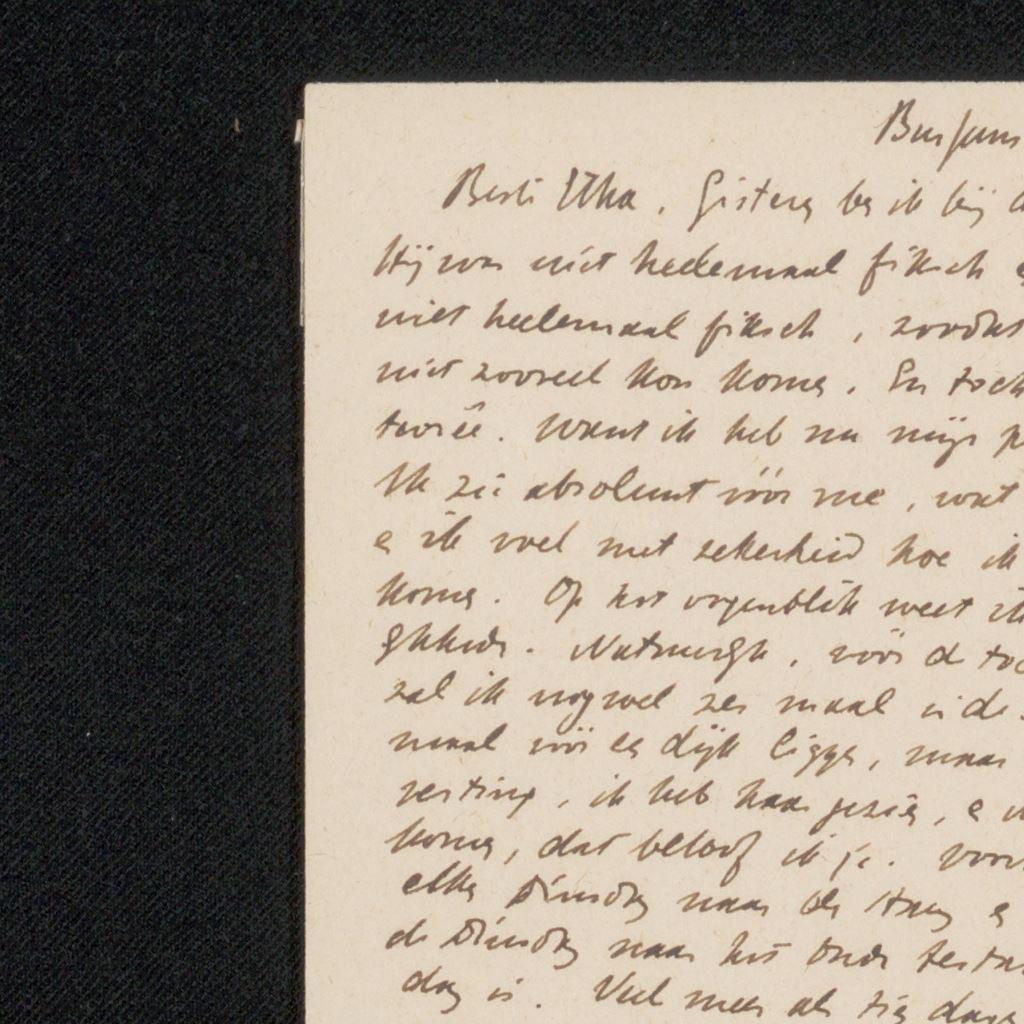 Bussum
Beste Utha, Gisteren ben ik bij d
Hij was niet heelemaal fiksch e
niet heelemaal fiksch, zoodat
niet zooveel kon komen. En toch
tevrêe. Want ik heb nu mijn p
Ik zie absoluut vóór me, wat
en ik voel met zekerheid hoe ik
komen. Op het oogenblik weet ik
Natuurlijk, vóór de toc
zal ik nog wel zes maal in de
maal vóór een dijk liggen, maar
vesting, ik heb haar gezien, en
komen, dat beloof ik je. voor
elken Dinsdag naar den Haag en
de Dinsdag naar het Oude testa
dag is. Veel meer als tien dagen